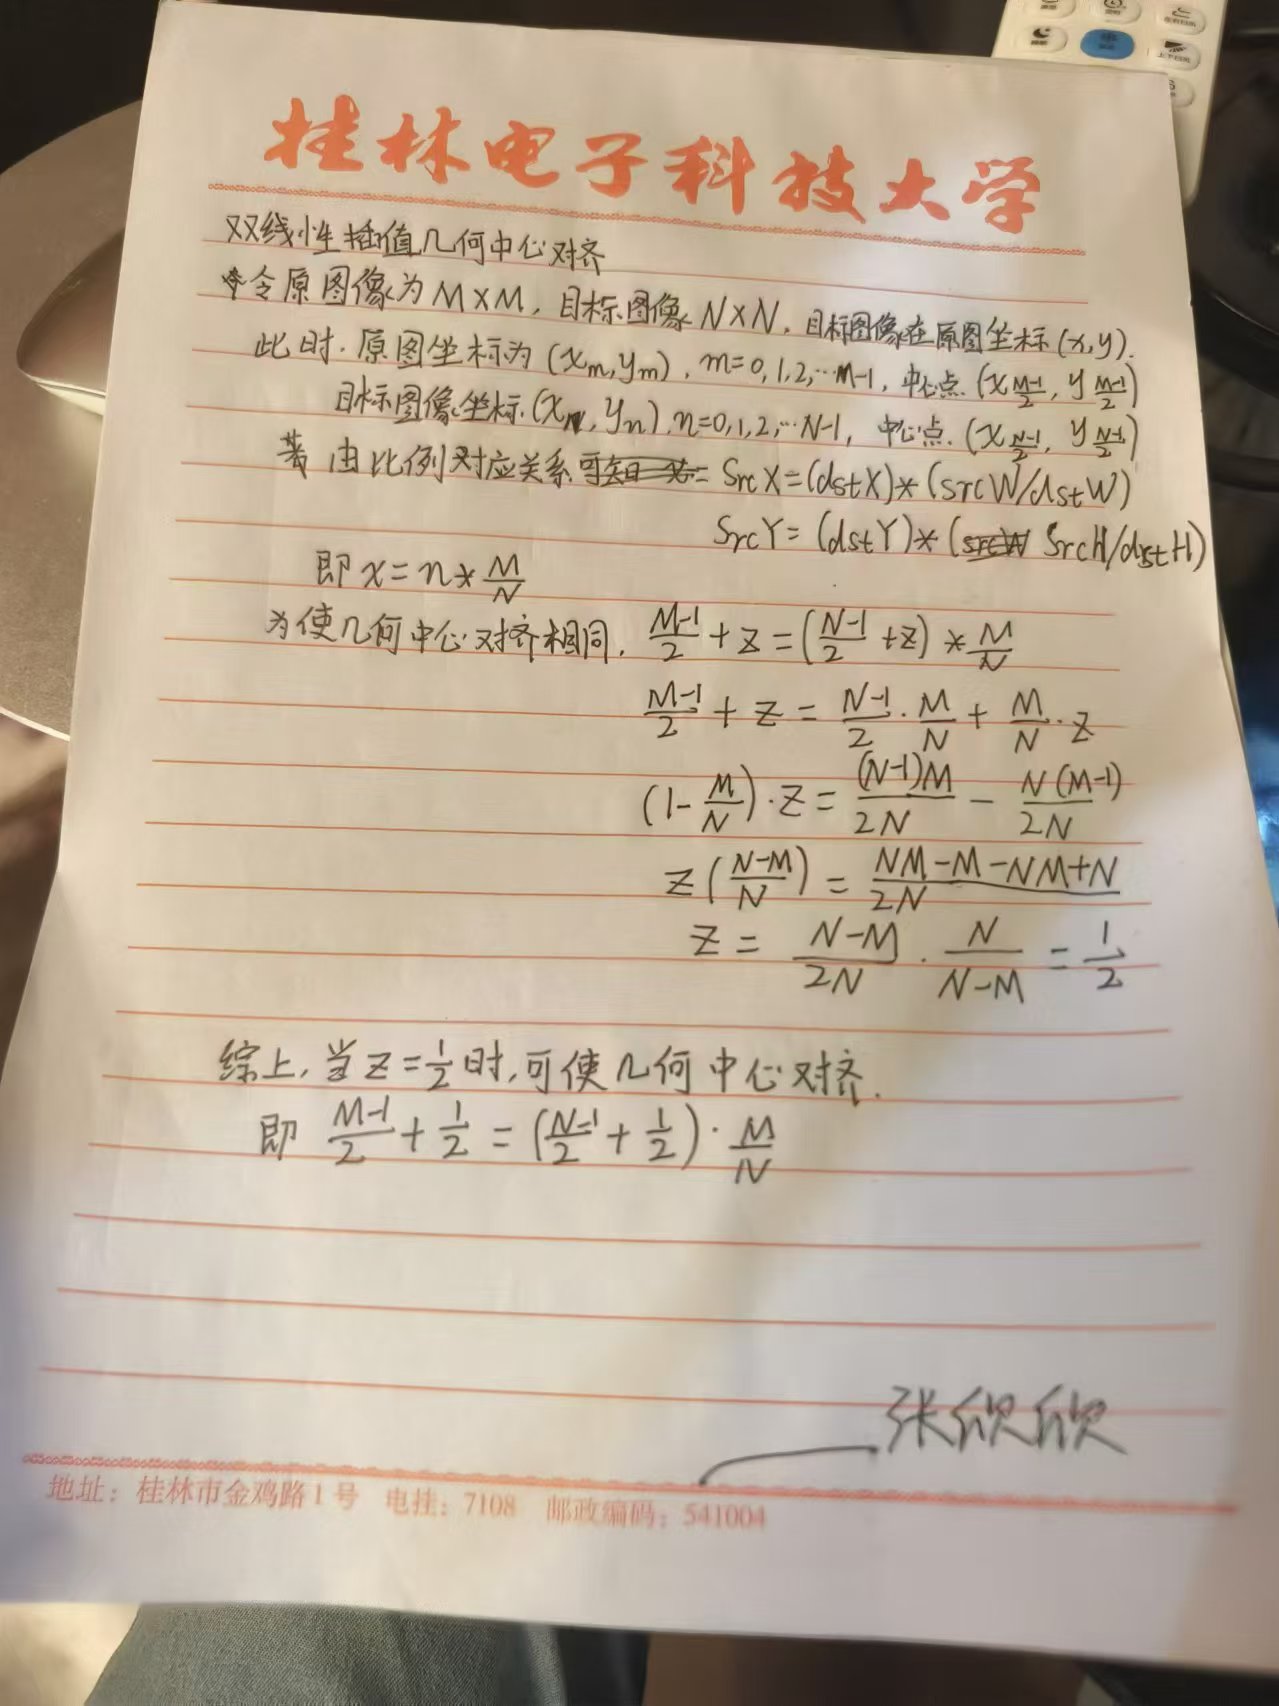 桂林电子科技大学
双线性插值几何中心对齐
令原图像为M×M,目标图像N×N,目标图像在原图坐标(x,y).
此时.原图坐标为(xₘ,yₘ),m=0,1,2,…M-1,中心点.(x_{\frac{M-1}{2}},y_{\frac{M-1}{2}})
目标图像坐标.(xₙ,yₙ).n=0,1,2,…N-1,中心点.(x_{\frac{N-1}{2}},y_{\frac{N-1}{2}})
由比例对应关系 SrcX=(dstX)*(srcW/dstW)
SrcY=(dstY)*(SrcH/dstH)
即x=n*\frac{M}{N}
为使几何中心对齐相同,\frac{M-1}{2}+z=(\frac{N-1}{2}+z)*\frac{M}{N}
\frac{M-1}{2}+z=\frac{N-1}{2}·\frac{M}{N}+\frac{M}{N}·z
(1-\frac{M}{N})·z=\frac{(N-1)M}{2N}-\frac{N(M-1)}{2N}
z(\frac{N-M}{N})=\frac{NM-M-NM+N}{2N}
z=\frac{N-M}{2N}·\frac{N}{N-M}=\frac{1}{2}
综上,当z=\frac{1}{2}时,可使几何中心对齐.
即\frac{M-1}{2}+\frac{1}{2}=(\frac{N-1}{2}+\frac{1}{2})·\frac{M}{N}
张欣欣
地址:桂林市金鸡路1号 电挂:7108 邮政编码:541004